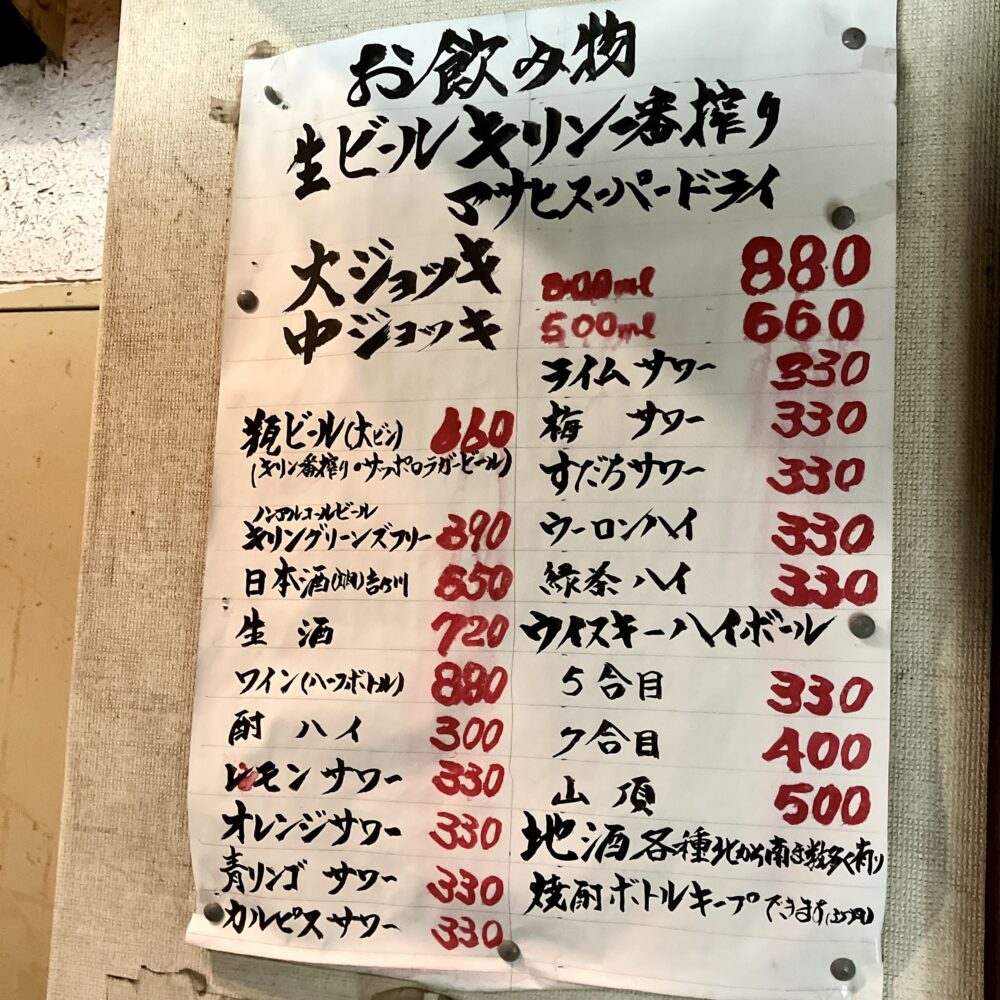 お飲み物
生ビール キリン一番搾り
アサヒスーパードライ
大ジョッキ 800ml 880
中ジョッキ 500ml 660
瓶ビール(大ビン) 660
(キリン一番搾り・サッポロラガービール)
ノンアルコールビール
キリングリーンズフリー 390
日本酒 吉乃川 550
生酒 720
ワイン(ハーフボトル) 880
酎ハイ 300
レモンサワー 330
オレンジサワー 330
青リンゴサワー 330
カルピスサワー 330
ライムサワー 330
梅サワー 330
すだちサワー 330
ウーロンハイ 330
緑茶ハイ 330
ウイスキーハイボール
5合目 330
7合目 400
山頂 500
地酒各種北から南まで数多く有り
焼酎ボトルキープできます